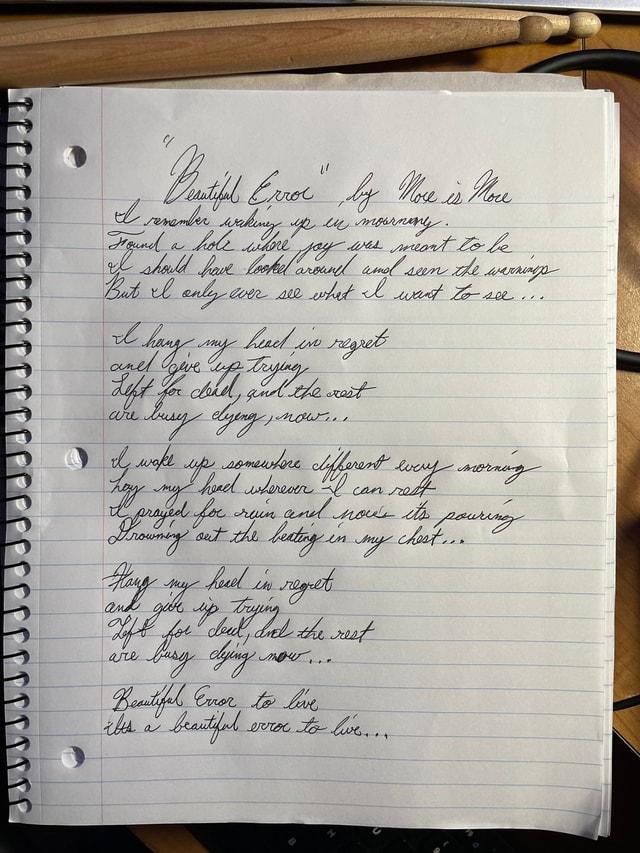 "Beautiful Error" by More is More
I remember waking up in mourning.
Found a hole where joy was meant to be
I should have looked around and seen the warnings
But I only ever see what I want to see...
I hang my head in regret
and give up trying
Left for dead, and the rest
are busy dyeng, now...
I wake up somewhere different every morning
Lay my head wherever I can rest
I prayed for rain and now its pouring
Drowning out the beating in my chest...
Hang my head in regret
and give up trying
Left for dead, and the rest
are busy dying now...
Beautiful Error to live
its a beautiful error to live...